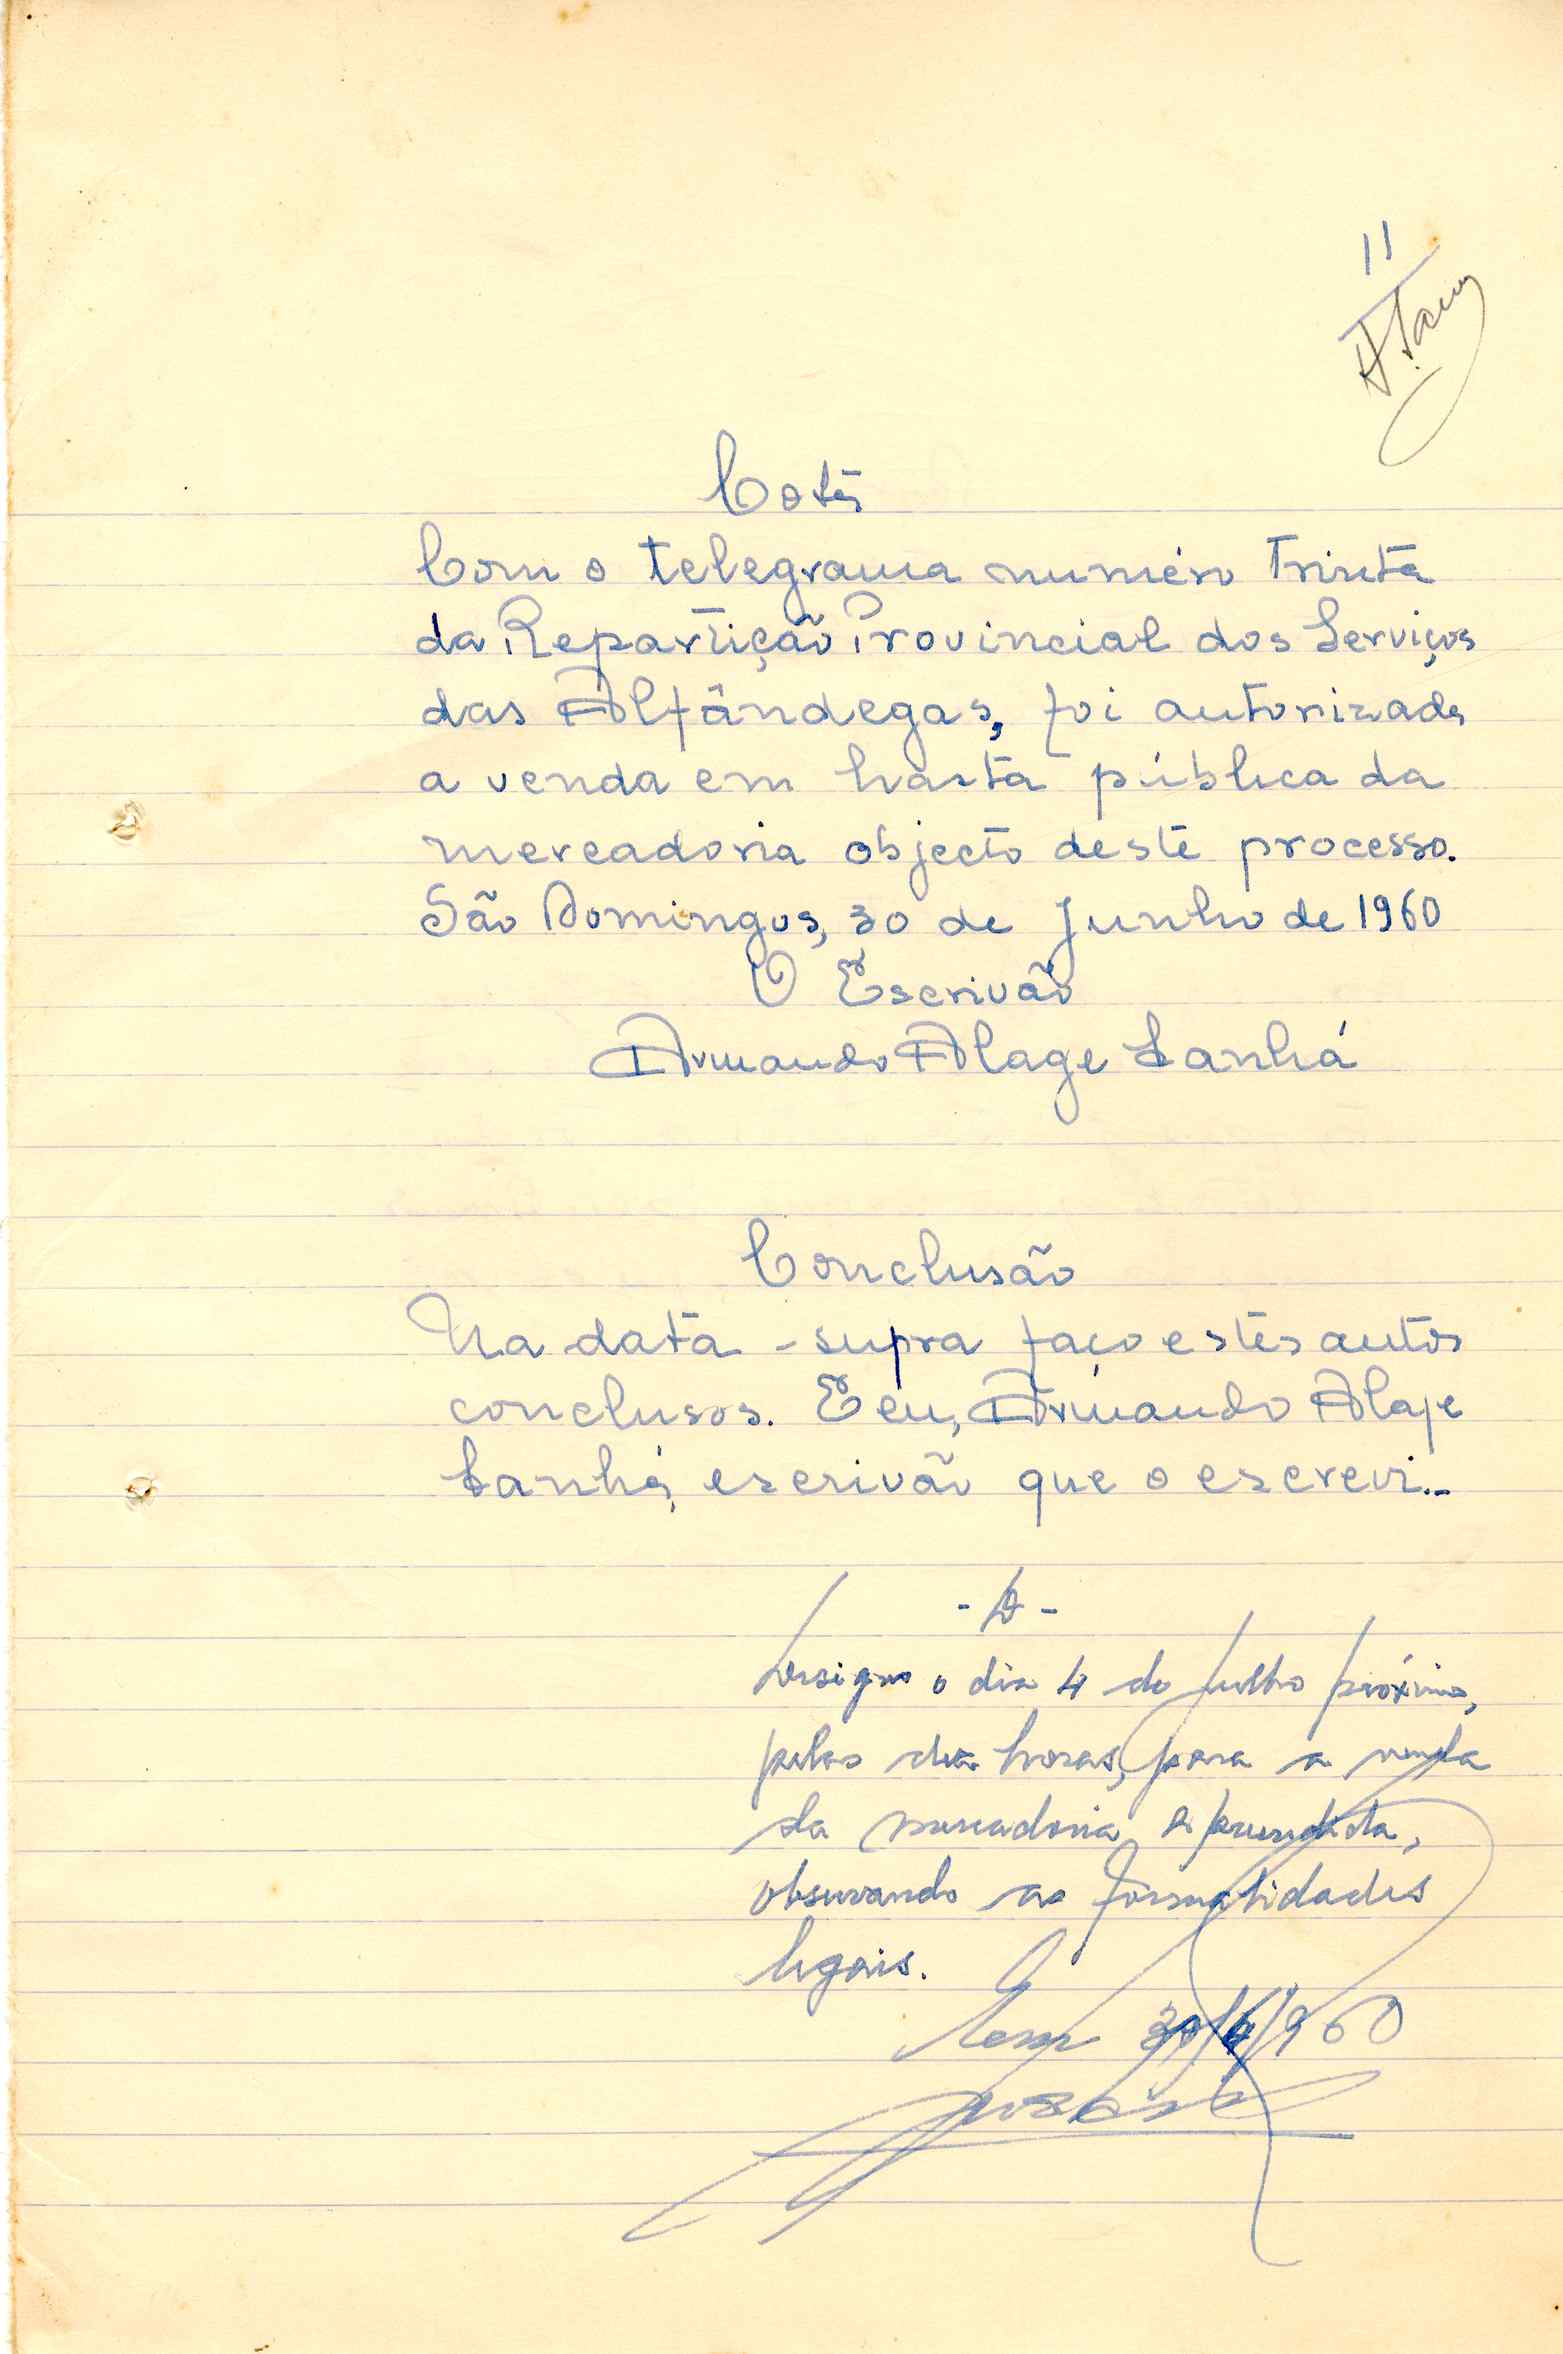 11
Cota
Com o telegrama número trinta
da Repartição Provincial dos Serviços
das Alfândegas, foi autorizada
a venda em hasta pública da
mercadoria objecto deste processo.
São Domingos, 30 de Junho de 1960
O Escrivão
Armando Alage Sanhá
Conclusão
Na data - supra faço estes autos
conclusos. E eu, Armando Alage
Sanhá, escrivão que o escrevi..-
- D -
Designo o dia 4 de Julho próximo,
pelas dez horas, para a venda
da mercadoria apreendida,
observando as formalidades
legais.
Em 30/6/960